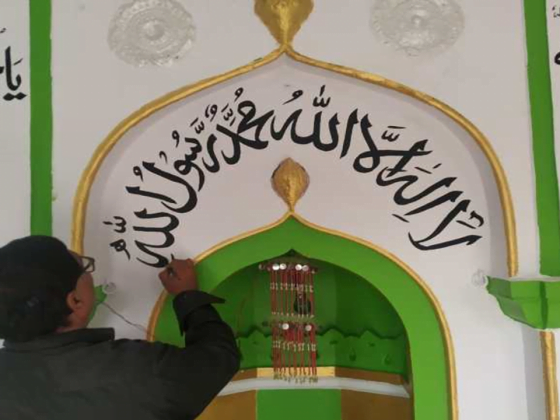 لَا اِلٰهَ اِلَّا اللّٰهُ مُحَمَّدٌ رَّسُوْلُ اللّٰهِ
يَا